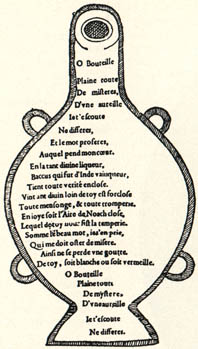 O Bouteille
Plaine toute
De misteres,
D'vne aureille
Iet'escoute
Ne differes,
Et le mot proferes,
Auquel pend mon cœur.
En la tant diuine liqueur,
Baccus qui fut d'Inde vainqueur,
Tient toute verité enclose.
Vin tant diuin loin de toy est forclose
Toute mensonge, & toute tromperie.
En ioye soit l'Aire de Noach close,
Lequel de toy nous fist la temperie.
Somme le beau mot, ia t'en prie,
Qui me doit oster de misere.
Ainsi ne se perde vne goutte.
De toy, soit blanche ou soit vermeille.
O Bouteille
Plaine toute
De mystere,
D'vne aureille
Iet'escoute
Ne differes.